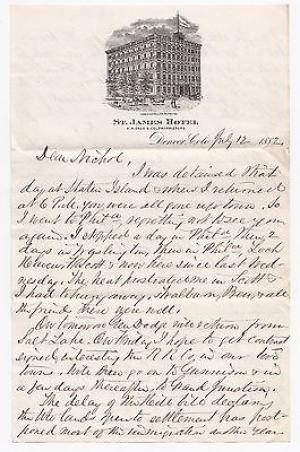 ST. JAMES HOTEL
Denver, Colo July 12 1882
Dear Nichol,
I was detained that
day at Staten Island & when I returned
at 6 P.M. you were all gone up town. So
I went to Phila regretting not to see you
again. I stopped a day in Phila then 2
days in Washington, then in Phila
& now here since last Wed-
nesday. The heat prostrated me in
I had to hurry away. Bren, & all
the friends there were well.
On tomorrow Gen Dodge returns from
Salt Lake. On Friday I hope to get contract
signed, interesting the R R Co, in our two
towns. Will then go on to Gunnison & in
a few days thereafter, to Grand Junction.
The delay of the bill declaring
the Ute lands open to settlement has post-
poned most of the immigration another year